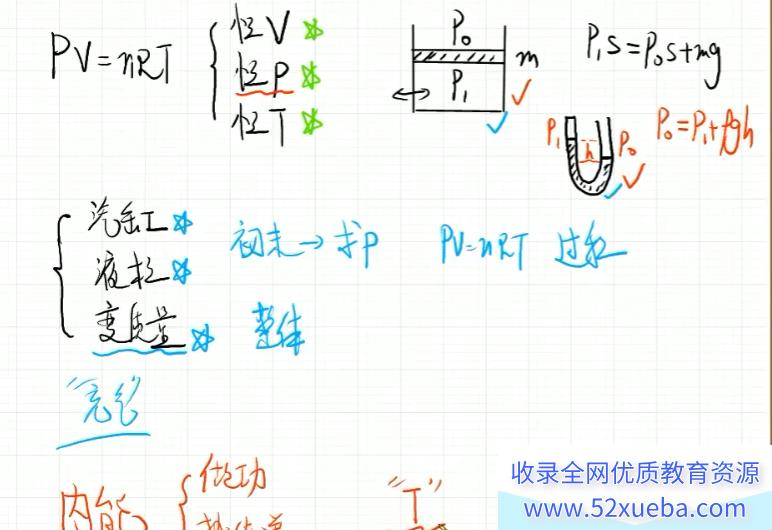 PV=nRT
恒V
恒P
恒T
P₀
P₁
m
P₁S=P₀S+mg
P₁
h
P₀
P₀=P₁+ρgh
汽缸
液柱
变质量
初末→求P
PV=nRT 过程
整体
"充气"
内能
做功
热传递
"T"
收录全网优质教育资源
www.52xueba.com